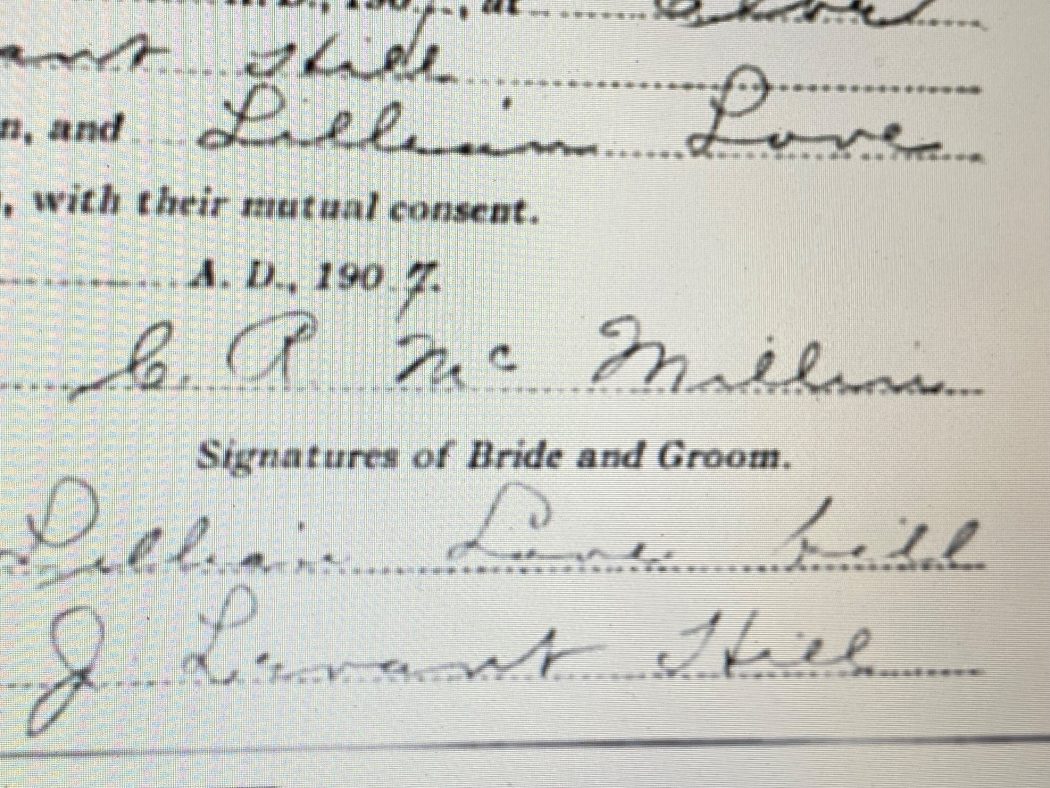 A. D., 190 7., at
ant Hill
n, and Lillian Love
, with their mutual consent.
A. D., 190 7.
C. A. Mc Millin
Signatures of Bride and Groom.
Lillian Love Hill
J Levant Hill